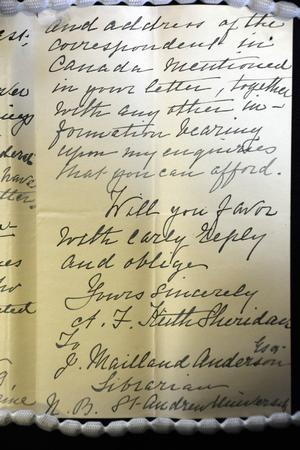 and address of the
correspondent in
Canada mentioned
in your letter, together
with any other in-
formation bearing
upon my enquiries
that you can afford.
Will you favor
with early reply
and oblige
Yours Sincerely
Keith Sheridan
To
J. Mailland Anderson Esq
Librarian
N. B. St Andrew Universit